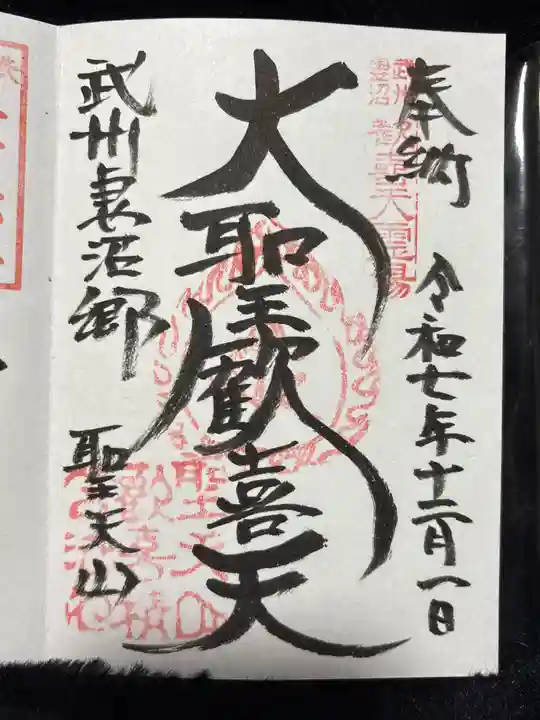 奉納 令和七年十二月一日
武州 妻沼 歓喜天霊場
大聖歓喜天
武州妻沼郷 聖天山